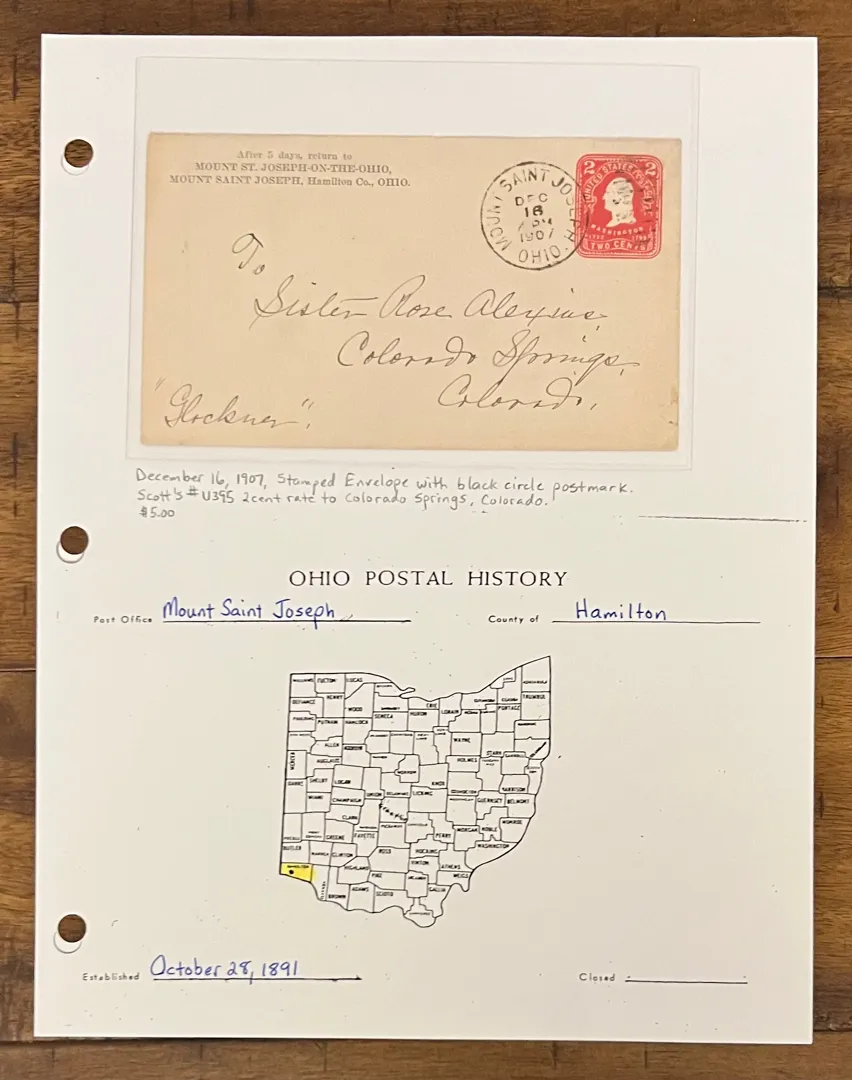 After 5 days, return to
MOUNT ST. JOSEPH-ON-THE-OHIO,
MOUNT SAINT JOSEPH, Hamilton Co., OHIO.
MOUNT SAINT JOSEPH
DEC
16
PM
1907
OHIO.
2 2
UNITED STATES
WASHINGTON
TWO CENTS
To
Sister Rose Alexius
Colorado Springs,
Colorado,
"Glockner".
December 16, 1907, Stamped Envelope with black circle postmark.
Scott's #U395 2cent rate to Colorado Springs, Colorado.
$5.00
OHIO POSTAL HISTORY
Post Office Mount Saint Joseph County of Hamilton
WILLIAMS FULTON LUCAS
DEFIANCE HENRY WOOD SENECA HURON ERIE LORAIN PORTAGE TRUMBULL
PAULDING PUTNAM HANCOCK
ALLEN WAYNE STARK CARROLL
MERCER AUGLAIZE HOLMES
DARKE SHELBY LOGAN MORROW KNOX HARRISON
MIAMI CHAMPAIGN UNION DELAWARE LICKING GUERNSEY BELMONT
CLARK Franklin MONROE
PREBLE GREENE FAYETTE PICKAWAY PERRY MORGAN NOBLE
BUTLER WARREN CLINTON ROSS HOCKING WASHINGTON
HAMILTON HIGHLAND PIKE VINTON ATHENS MEIGS
BROWN ADAMS SCIOTO GALLIA
Established October 28, 1891 Closed